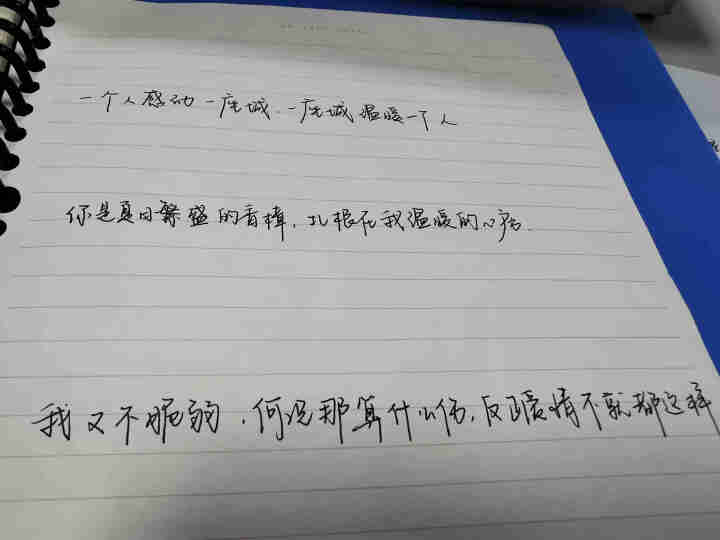 一个人感动一座城、一座城温暖一个人
你是夏日繁盛的香樟，扎根在我温暖的心房.
我又不脆弱，何况那算什么伤，反正爱情不就都这样